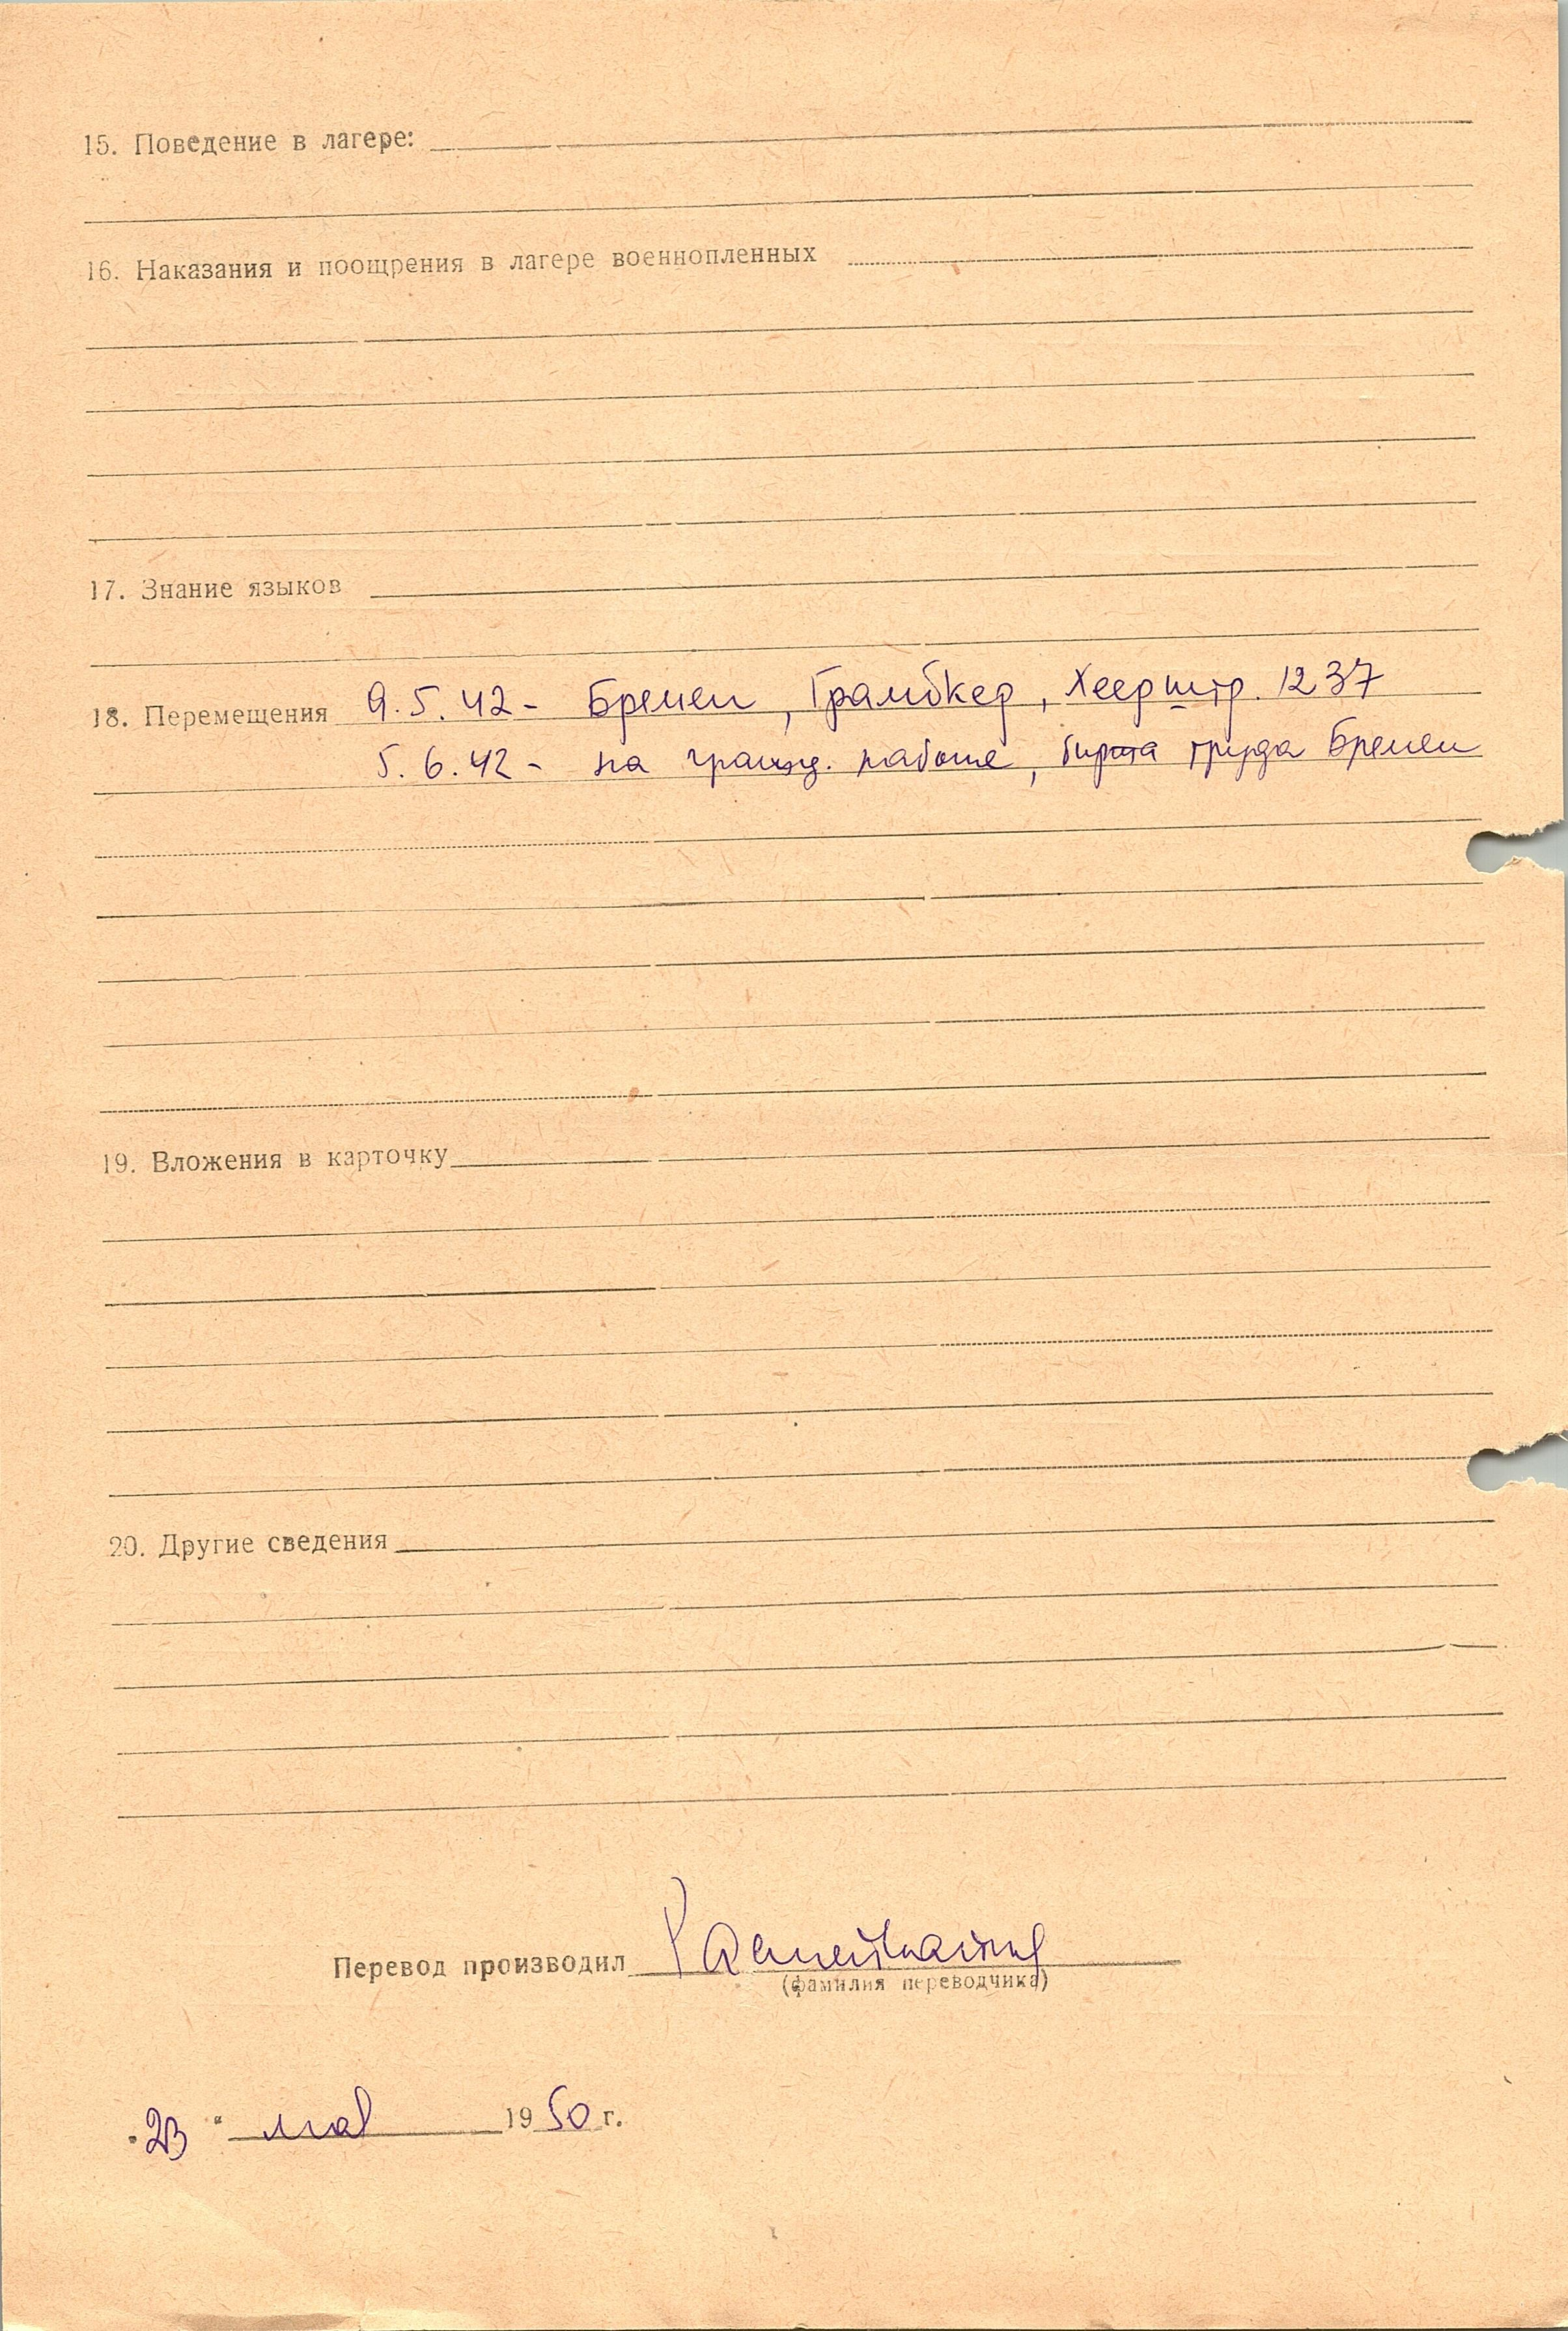 15. Поведение в лагере:
16. Наказания и поощрения в лагере военнопленных
17. Знание языков
18. Перемещения 9.5.42 - Бремен, Грамбкер, Хеерштр. 1237
5.6.42 - на гражд. работе, биржа труда Бремен
19. Вложения в карточку
20. Другие сведения
Перевод производил
(фамилия переводчика)
"23" мая 1950 г.